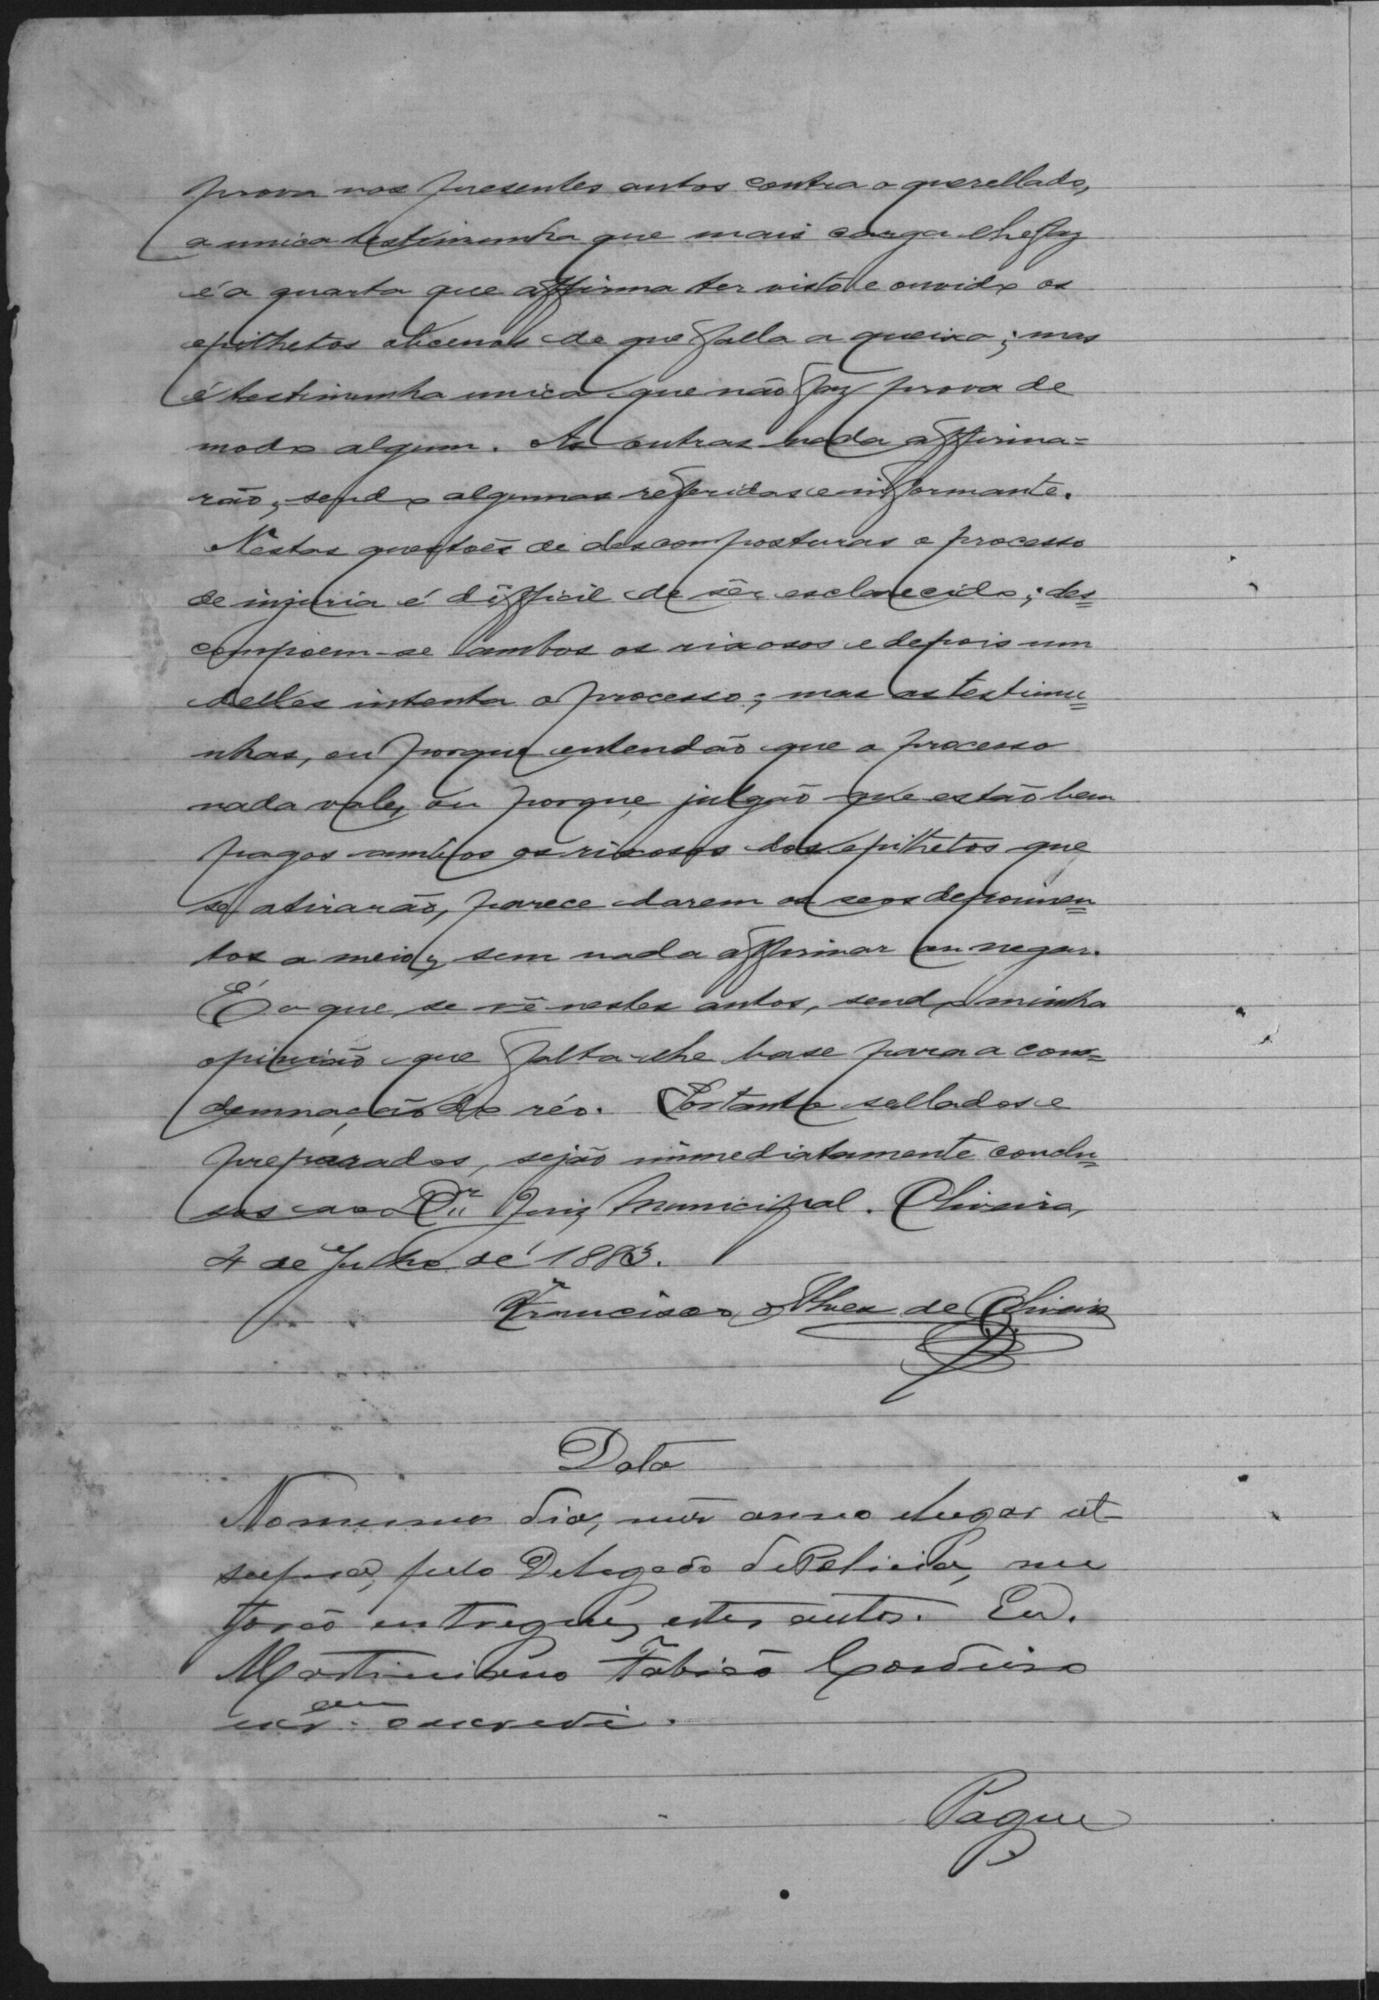 prova nos presentes autos contra o querellado,
a unica testimunha que mais carga lhe faz
é a quarta que affirma ter visto e ouvido os
epithetos obcenos de que falla a queixa; mas
é testimunha unica que não faz prova de
modo algum. As outras nada affirma=
rão, sendo algumas referidas e informante.
Nestas questões de descomposturas o processo
de injuria é difficil de sêr esclarecido; des=
compoem-se ambos os rixosos e depois um
delles intenta o processo; mas as testimu=
nhas, ou porque entendão que o processo
nada vale, ou porque julgão que estão bem
pagos ambos os rixosos dos epithetos que
se atirarão, parece darem os seos depoimen=
tos a meio, sem nada affirmar ou negar.
É o que se vê nestes autos, sendo minha
opinião que falta-lhe base para a con=
demnação do réo. Portanto sellados e
preparados, sejão immediatamente conclu=
sos ao Dr. Juiz Municipal. Oliveira,
4 de Julho de 1883.
Francisco Alves de Oliveira
Data
No mesmo dia, mês anno e lugar ut
supra, pelo Delegado de Policia, me
forão entregues estes autos. Eu.
Martiniano Fabião Cordeiro
escram. o escrevi.
Pague